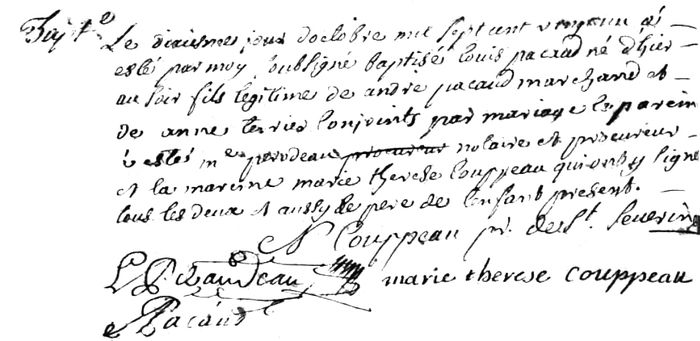 Bapte
Le dixiesme jour doctobre mil sept cent vingt un a
esté par moy soubsigné baptisé louis pacaud né dhier
au soir fils legitime de andré pacaud marchand et
de anne terrier conjoints par mariage le parein
a esté me perodeau procureur notaire et procureur
et la mareine marie therese Couppeau qui ont signé
tous les deux et aussy le pere de lenfant present.
Couppeau pr. de St. Severin
marie therese Couppeau
Pacaud